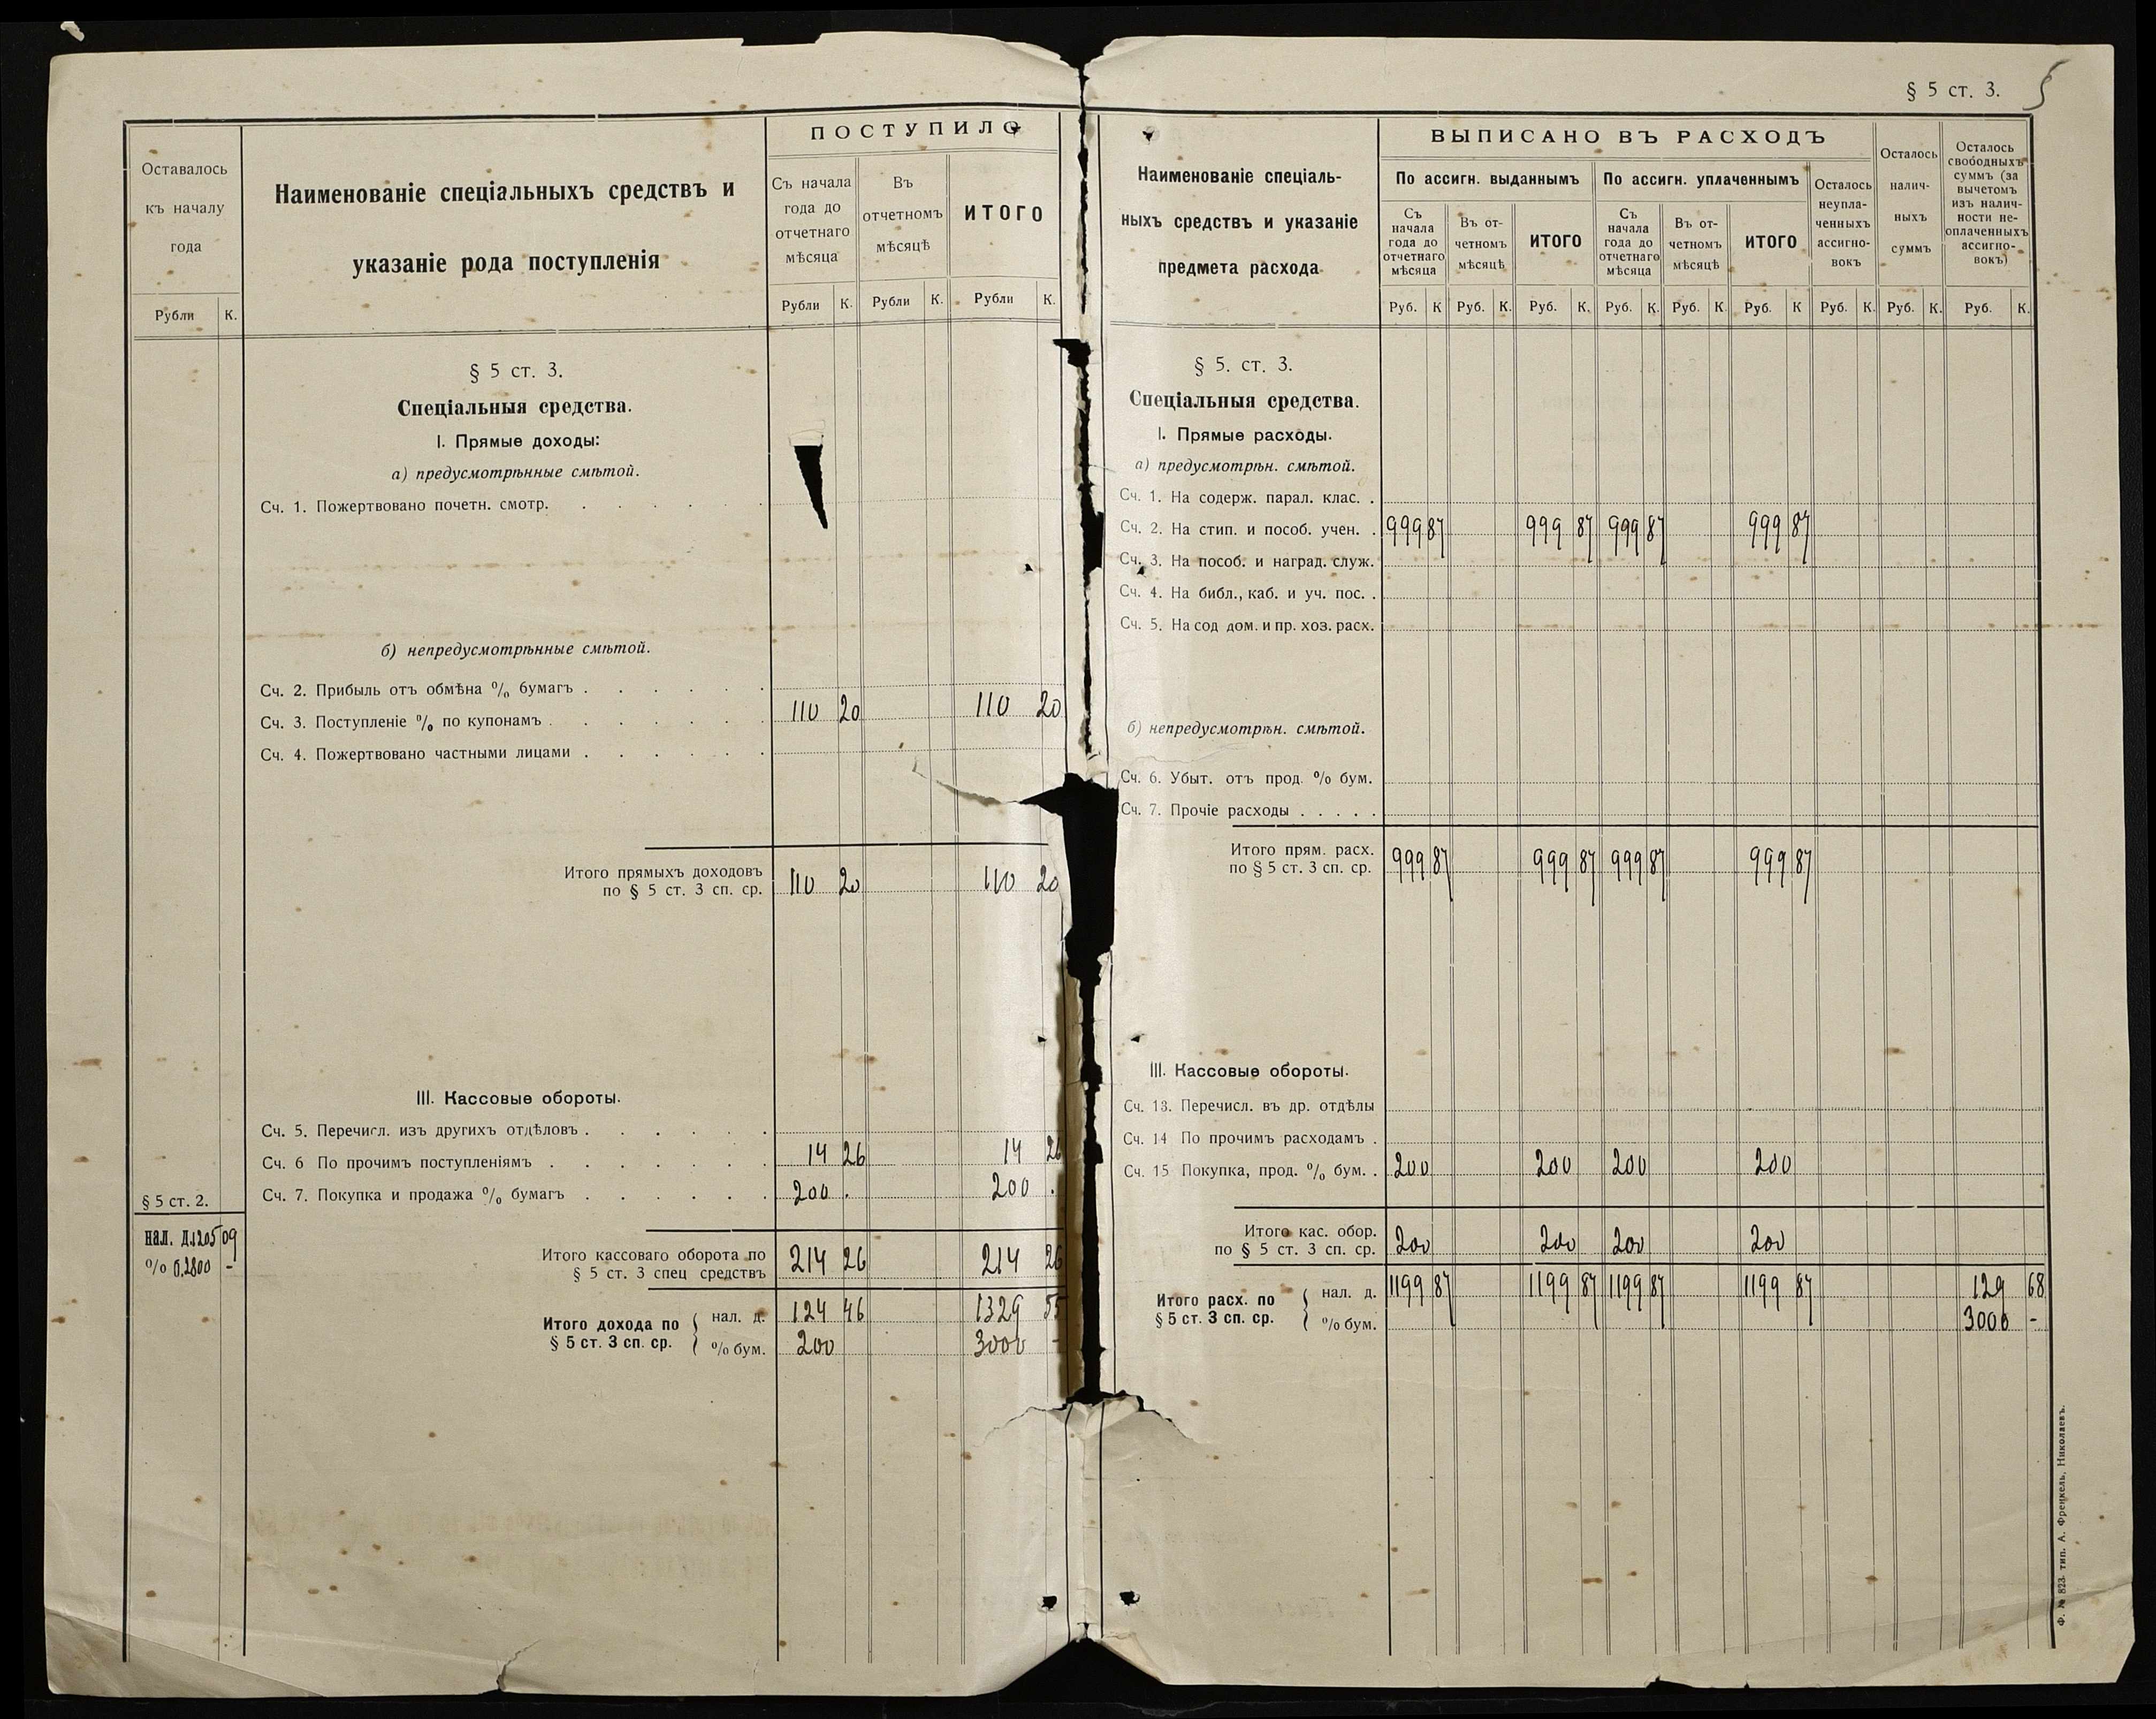 § 5 ст. 3.
5
Оставалось
къ началу
года
Рубли К.
Наименованіе спеціальныхъ средствъ и
указаніе рода поступленія
ПОСТУПИЛО
Съ начала
года до
отчетнаго
мѣсяца
Въ
отчетномъ
мѣсяцѣ
ИТОГО
Рубли К. Рубли К. Рубли К.
§ 5 ст. 3.
Спеціальныя средства.
I. Прямые доходы:
а) предусмотрѣнные смѣтой.
Сч. 1. Пожертвовано почетн. смотр.
б) непредусмотрѣнные смѣтой.
Сч. 2. Прибыль отъ обмѣна % бумагъ
Сч. 3. Поступленіе % по купонамъ 110 20 110 20
Сч. 4. Пожертвовано частными лицами
Итого прямыхъ доходовъ
по § 5 ст. 3 сп. ср. 110 20 110 20
III. Кассовые обороты.
Сч. 5. Перечисл. изъ другихъ отдѣловъ
Сч. 6 По прочимъ поступленіямъ 14 26 14 26
Сч. 7. Покупка и продажа % бумагъ 200 . 200 .
§ 5 ст. 2.
нал. д. 1205 09
% б. 2800 -
Итого кассоваго оборота по
§ 5 ст. 3 спец средствъ 214 26 214 26
Итого дохода по
§ 5 ст. 3 сп. ср.
нал. д. 124 46 1329 55
% бум. 200 3000 -
Наименованіе спеціаль-
ныхъ средствъ и указаніе
предмета расхода
ВЫПИСАНО ВЪ РАСХОДЪ
По ассигн. выданнымъ По ассигн. уплаченнымъ
Съ
начала
года до
отчетнаго
мѣсяца
Въ от-
четномъ
мѣсяцѣ
ИТОГО
Съ
начала
года до
отчетнаго
мѣсяца
Въ от-
четномъ
мѣсяцѣ
ИТОГО
Осталось
неупла-
ченныхъ
ассигно-
вокъ
Осталось
налич-
ныхъ
суммъ
Осталось
свободныхъ
суммъ (за
вычетомъ
изъ налич-
ности не-
оплаченныхъ
ассигно-
вокъ)
Руб. К Руб. К. Руб. К. Руб. К. Руб. К. Руб. К Руб. К. Руб. К. Руб. К.
§ 5. ст. 3.
Спеціальныя средства.
I. Прямые расходы.
а) предусмотрѣн. смѣтой.
Сч. 1. На содерж. парал. клас. .
Сч. 2. На стип. и пособ. учен. . 999 87 999 87 999 87 999 87
Сч. 3. На пособ. и наград. служ.
Сч. 4. На библ., каб. и уч. пос. .
Сч. 5. На сод дом. и пр. хоз. расх.
б) непредусмотрѣн. смѣтой.
Сч. 6. Убыт. отъ прод. % бум.
Сч. 7. Прочіе расходы . . . . .
Итого прям. расх.
по § 5 ст. 3 сп. ср. 999 87 999 87 999 87 999 87
III. Кассовые обороты.
Сч. 13. Перечисл. въ др. отдѣлы
Сч. 14 По прочимъ расходамъ .
Сч. 15 Покупка, прод. % бум. . 200 200 200 200
Итого кас. обор.
по § 5 ст. 3 сп. ср. 200 200 200 200
Итого расх. по
§ 5 ст. 3 сп. ср.
нал. д. 1199 87 1199 87 1199 87 1199 87 129 68
% бум. 3000 -
Ф. № 823. тип. А. Френкель, Николаевъ.